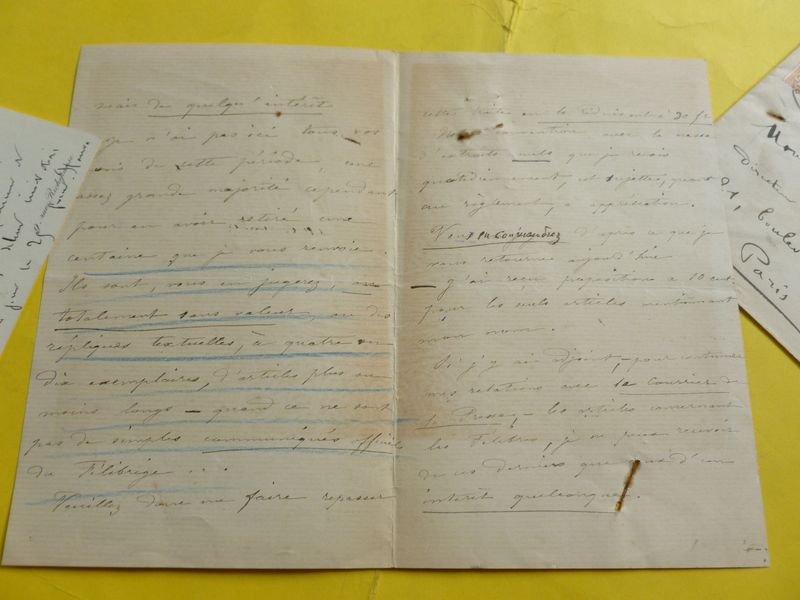 mais de quelqu'intérêt
Je n'ai pas ici tous vos
de cette période, une
assez grande majorité cependant
pour en avoir retiré une
centaine que je vous renvoie.
Ils sont, vous en jugerez, ou
totalement sans valeur, ou des
répliques textuelles, à quatre ou
dix exemplaires, d'articles plus ou
moins longs — quand ce ne sont
pas de simples communiqués officiels
du Félibrige ...
Veuillez donc me faire repasser
cette traite en la réduisant à 20 fr
convention avec la masse
d'extraits nuls que je reçois
quotidiennement, est sujette, quant
au règlement, à appréciation.
Vous en conviendrez d'après ce que je
vous retourne aujourd'hui
— J'ai reçu proposition à 10 cent.
pour les seuls articles mentionnant
mon nom.
Si j'y ai adjoint, — pour continuer
mes relations avec le Courrier de
la Presse, — les articles concernant
les Félibres, je ne puis recevoir
de ces derniers que ceux d'un
intérêt quelconque.
Directeur
21, Boulev
Paris